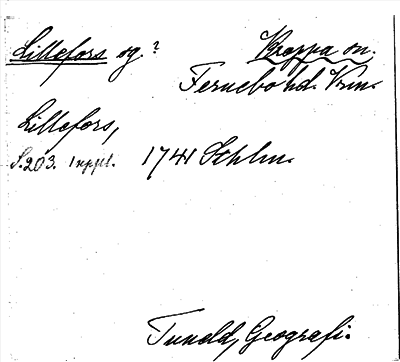 Lillefors og.? Kroppa sn.
Fernebo hd. Vrm.
Lillefors,
S.203. 1 uppl. 1741 Sthlm.
Tuneld, Geografi.